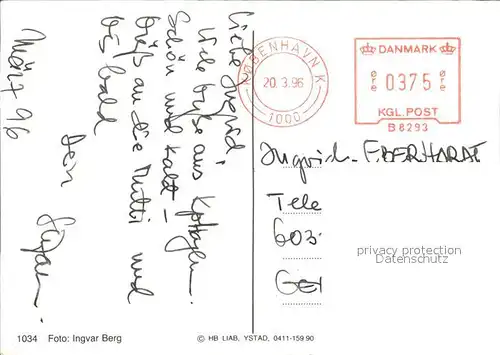 März 96
Liebe Ingrid,
Viele Grüße aus Kphagen.
Schön und kalt –
Grüß an die Mutti und
bis bald
Dein
KØBENHAVN K
20.3.96
1000
DANMARK
øre 0375 øre
KGL.POST
B8293
Ingrid EBERHARDT
Tele
603
privacy protection
Datenschutz
1034 Foto: Ingvar Berg
© HB LIAB, YSTAD, 0411-159 90